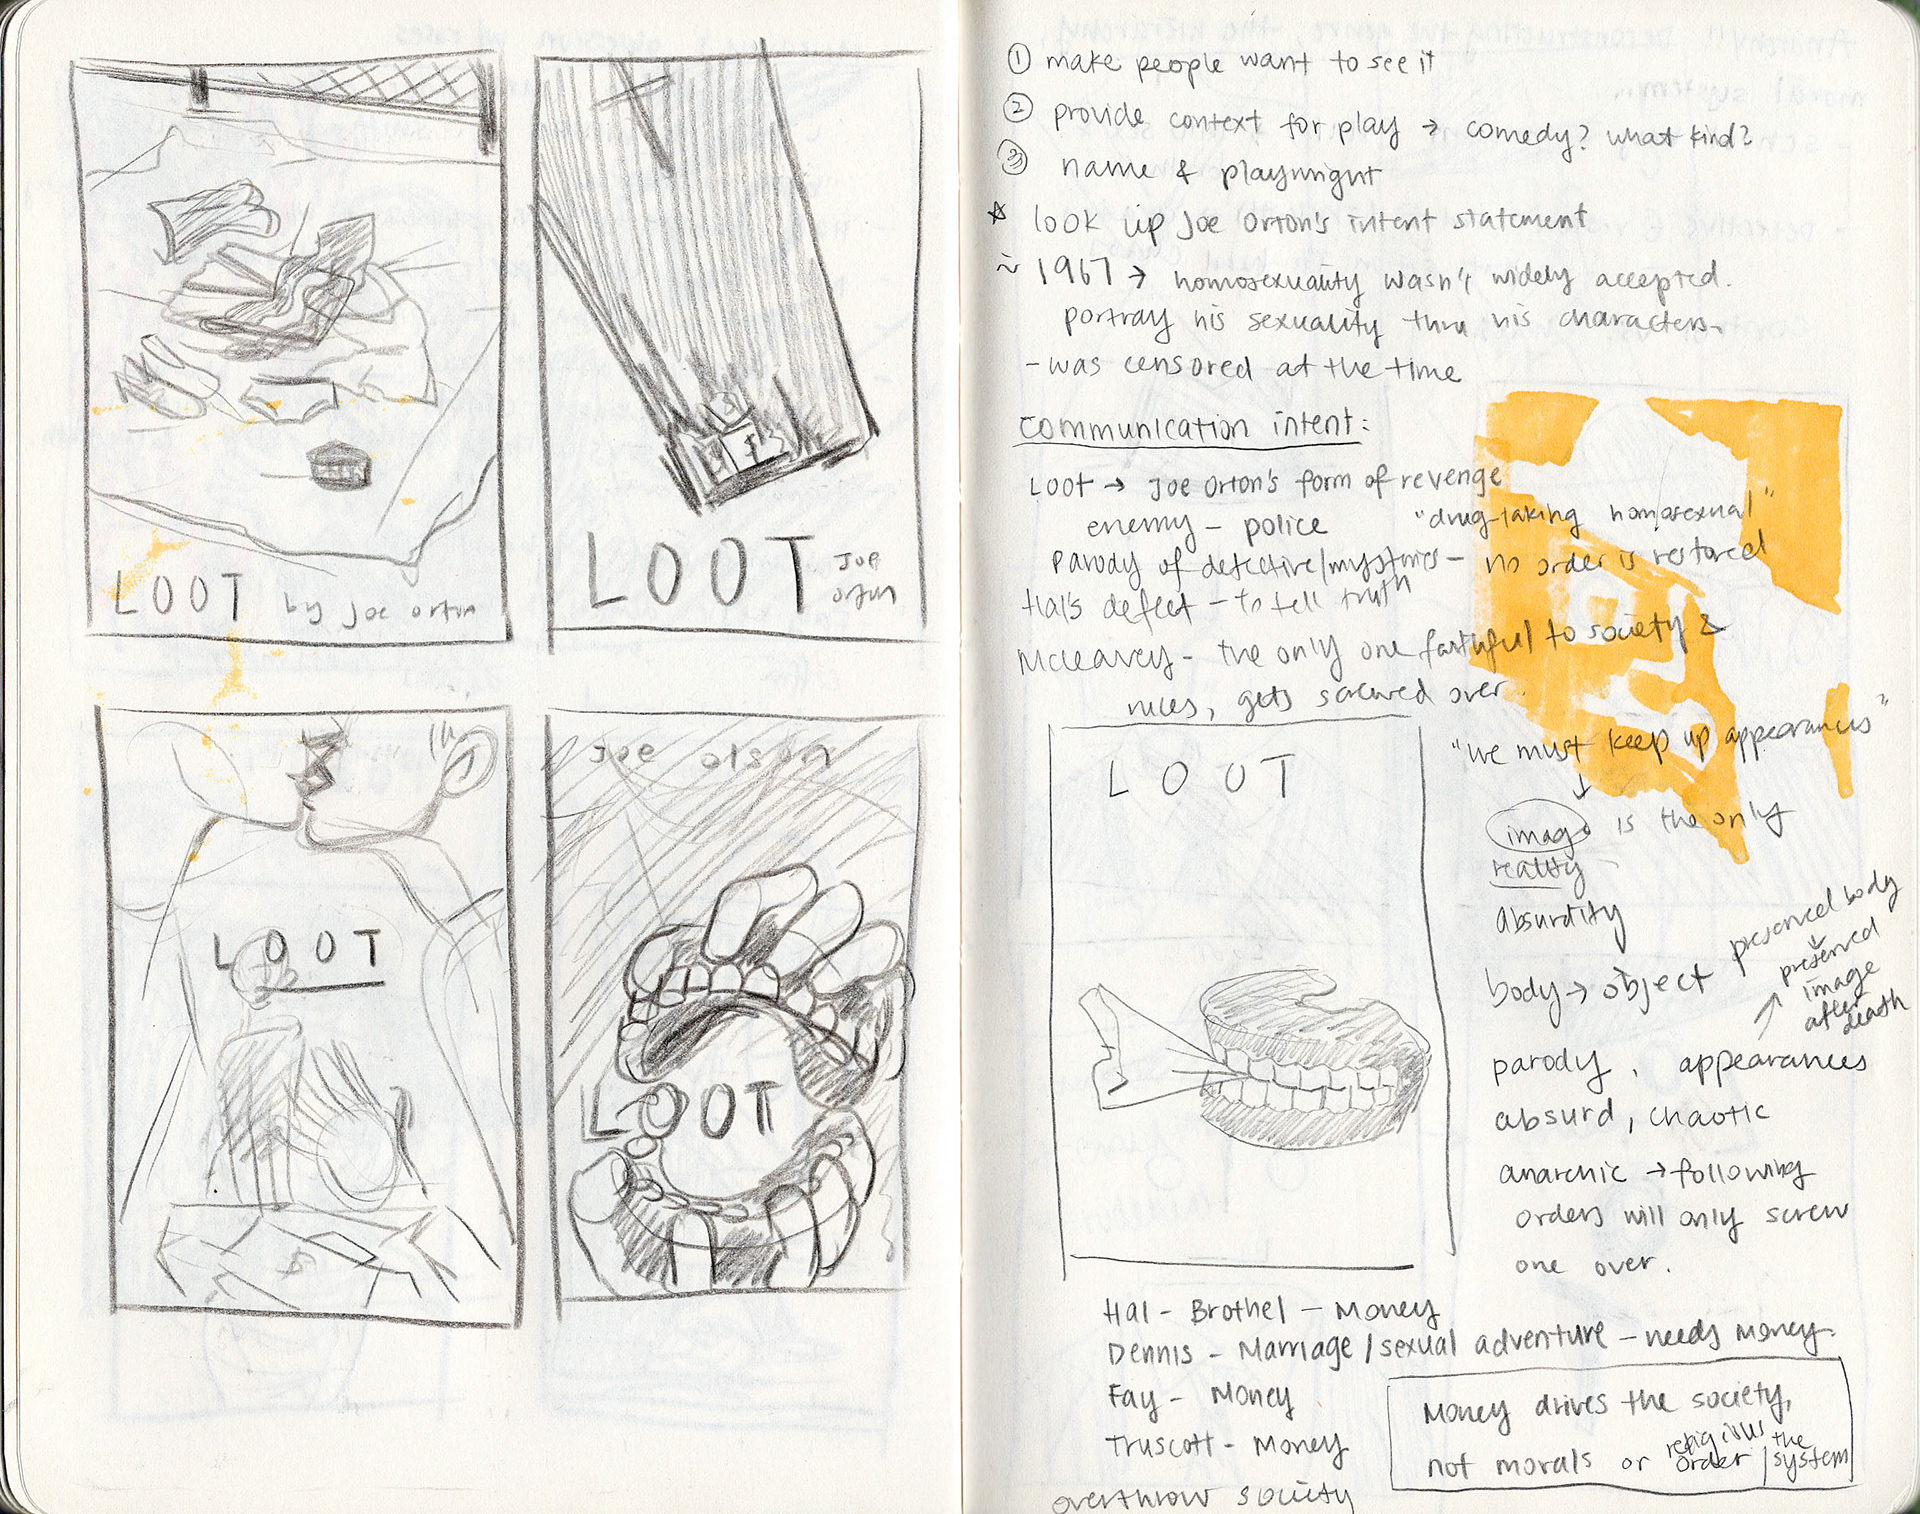 LOOT by Joe Orton
LOOT Joe
Orton
LOOT
Joe olson
LOOT
① make people want to see it
② provide context for play → comedy? what kind?
③ name & playwright
☆ look up Joe Orton's intent statement
1967 → homosexuality wasn't widely accepted.
portray his sexuality thru his characters.
- was censored at the time
communication intent:
LOOT → Joe Orton's form of revenge
enemy - police "drug-taking homosexual"
parody of detective/mysteries - no order is restored
Hal's defect - to tell truth
McLeavey - the only one faithful to society &
rules, gets screwed over.
LOOT
"we must keep up appearances"
↓
image is the only
reality
absurdity
body → object preserved body
↓
preserved
image
after
death
parody, appearances
absurd, chaotic
anarchic → following
orders will only screw
one over.
Hal - Brothel - Money
Dennis - Marriage / sexual adventure - needs money.
Fay - Money
Truscott - Money
Money drives the society,
not morals or religious order / the system
overthrow society